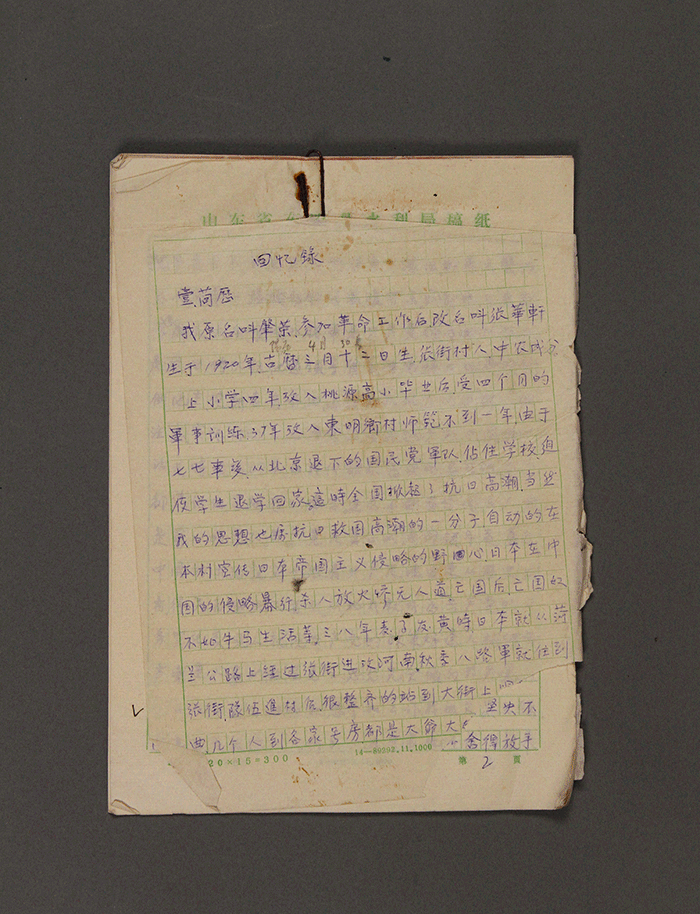 山东省 水利局稿纸
回忆录
壹.简歷
我原名叫肇荣,参加革命工作后,改名叫张華軒
4月30
生于1920年.古曆三月十二日生.张街村人.中农成分
上小学四年.攷入桃源高小毕业后,受四个月的
軍事训練.37年攷入東明 村师范不到一年.由于
七七事変.从北京退下的国民党軍队.佔住学校迫
使学生退学回家.這時全国掀起了抗日高潮.当然
我的思想也 抗日救国高潮的一分子.自动的在
本村宣传日本帝国主义侵略的野 心.日本在中
国的侵略暴行.杀人放火 无人道.亡国后亡国奴
不如牛马生活等.三八年麦子发黄時日本就从菏
兰公路上经过张街進攻河南.秋季八路軍就住到
张街.隊伍進村后.很整齐的站到大街上
坚决不
典.几个人到各家号房都是大爷大
舍得放手
20×15=300
14—89292.11.1000
第 2 頁